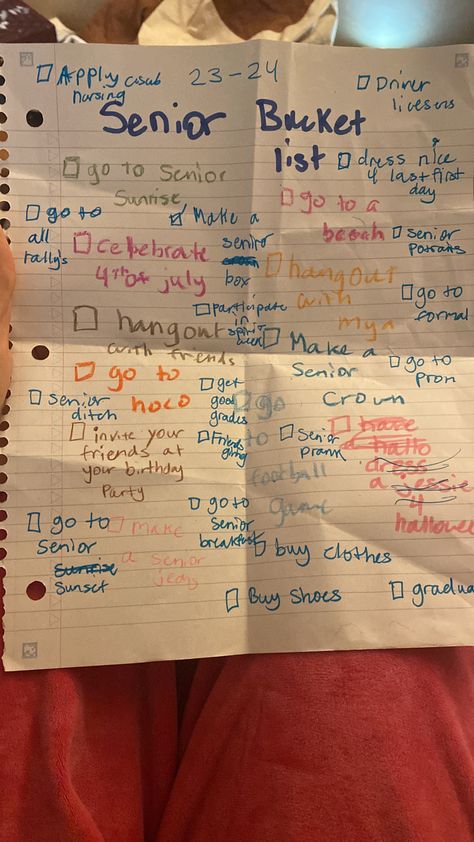 ☐ Apply
nursing
23-24
☐ Driver
Senior Bucket
list
☐ go to Senior
Sunrise
☐ dress nice
4 last first
day
☐ go to
all
rally's
☑ Make a
senior
box
☐ go to a
beach
☐ senior
☐ celebrate
4th of july
☐ hangout
with
mya
☐ go to
formal
☐ participate
in
spirit
week
☐ hangout
with friends
☐ Make a
Senior
Crown
☐ go to
pron
☐ go to
hoco
☐ get
good
grades
☐ go
to
football
game
☐ senior
ditch
☐ invite your
friends at
your birthday
party
☐ Friends
giving
☐ Senior
prank
☐ have
a hallo
dress
a jessie
4
hallowee
☐ go to
senior
breakfast
☐ go to
Senior
sunrise
sunset
☐ make
a senior
☐ buy clothes
☐ Buy shoes
☐ gradua